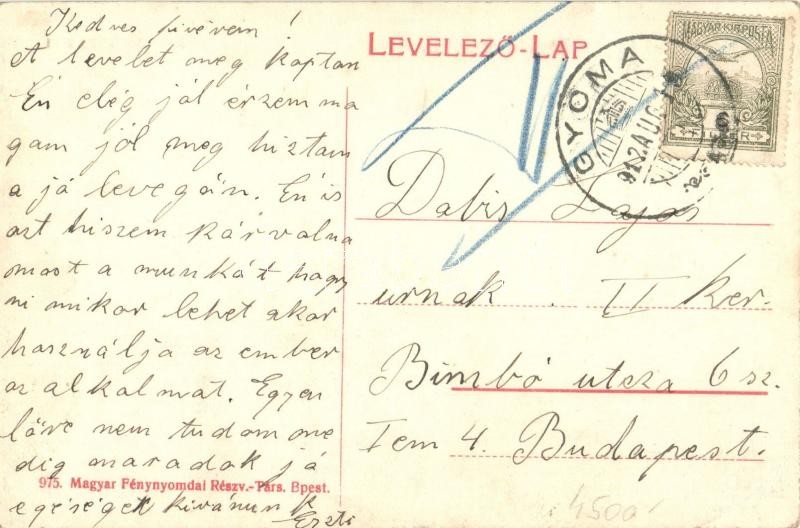 Kedves
A levelet meg kaptam
Én elég jól érzem ma
gam jól meg hiztam
a jó levegőn. Én is
azt hiszem kár volna
most a munkát hagy
ni mikor lehet akor
használja az ember
az alkalmat. Egyen
lőre nem tudom me
dig maradok jó
egéséget kivánunk
Eszti
975. Magyar Fénynyomdai Részv.-Társ. Bpest.
LEVELEZŐ-LAP
MAGYAR KIR. POSTA
6
FILLÉR
GYOMA
912 AUG
Dabis Lajos
urnak II ker.
Bimbó utcza 6 sz.
I em 4. Budapest.
4500